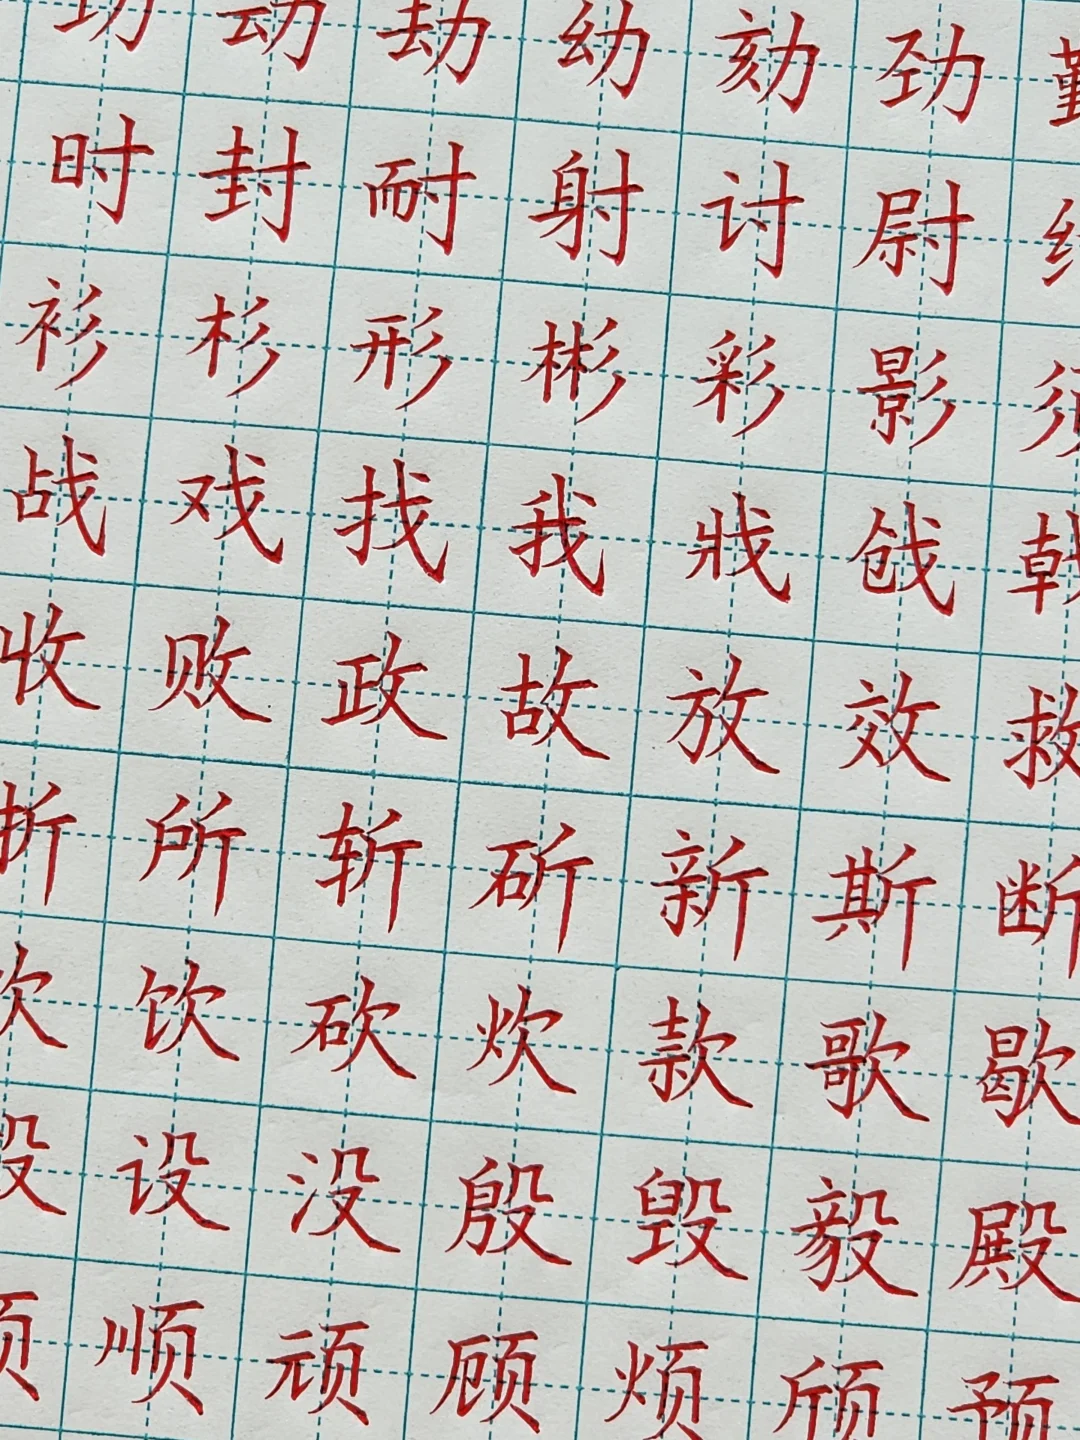 功 动 劫 幼 刻 劲 勤
时 封 耐 射 讨 尉
衫 杉 形 彬 彩 影 须
战 戏 找 我 戕 戗 戟
收 败 政 故 放 效 救
折 所 斩 斫 新 斯 断
欢 饮 砍 炊 款 歌 歇
设 没 殷 毁 毅 殿
顺 顽 顾 烦 颀 预